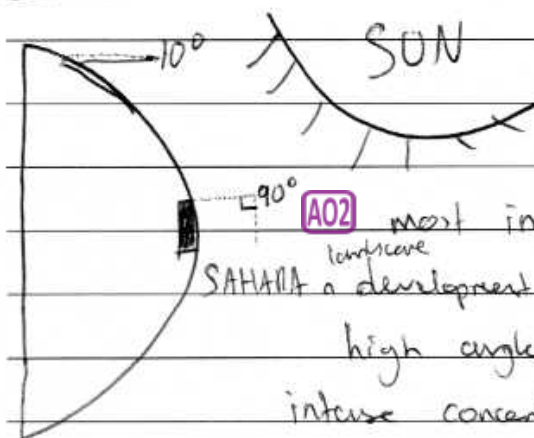 SUN
10°
90°
AO2 most in
landscape
SAHARA development
high angle
intense concen